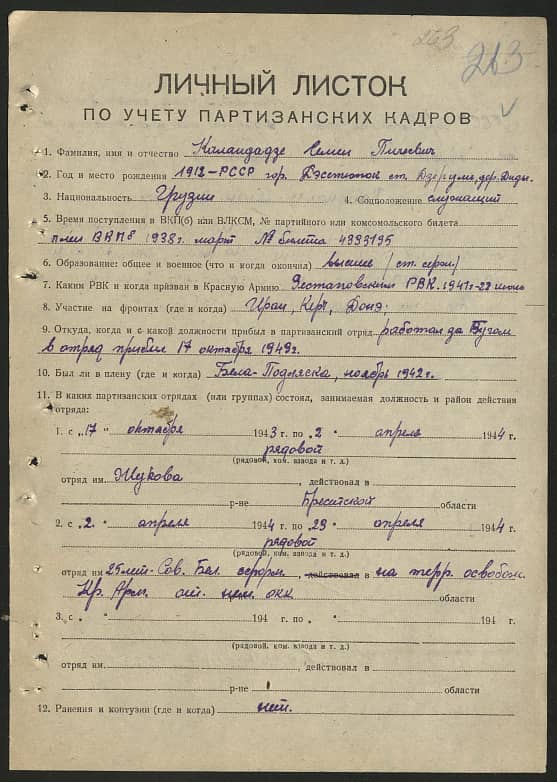 263
263
ЛИЧНЫЙ ЛИСТОК
ПО УЧЕТУ ПАРТИЗАНСКИХ КАДРОВ
1. Фамилия, имя и отчество Каландадзе Семен
2. Год и место рождения 1912-РССР гор. ст. Дзерула, дер.
3. Национальность Грузин 4. Соцположение служащий
5. Время поступления в ВКП(б) или ВЛКСМ, № партийного или комсомольского билета
член ВКПб 1938г. март № билета 4393195
6. Образование: общее и военное (что и когда окончил) высшее
7. Каким РВК и когда призван в Красную Армию РВК. 1941г-22 июня
8. Участие на фронтах (где и когда) Иран, Керч, Донъ;
9. Откуда, когда и с какой должности прибыл в партизанский отряд работал за Бугом
в отряд прибыл 17 октября 1943г.
10. Был ли в плену (где и когда) Бела-Подляска, ноябрь 1942г.
11. В каких партизанских отрядах (или группах) состоял, занимаемая должность и район действия
отряда:
1. с „17 " октября 1943 г. по „2 " апреля 1944 г.
рядовой
(рядовой, ком. взвода и т. д.)
отряд им. Жукова , действовал в
р-не Брестской области
2. с „2. " апреля 1944 г. по „29 " апреля 1944 г.
рядовой
(рядовой, ком. взвода и т. д.)
отряд им 25лет. Сов. Бел. действовал в на терр. освобож.
Кр. Арм. от. нем. окк области
3. с „ " 194 г. по „ " 194 г.
(рядовой, ком. взвода и т. д.)
отряд им. , действовал в
р-не области
12. Ранения и контузии (где и когда) нет.